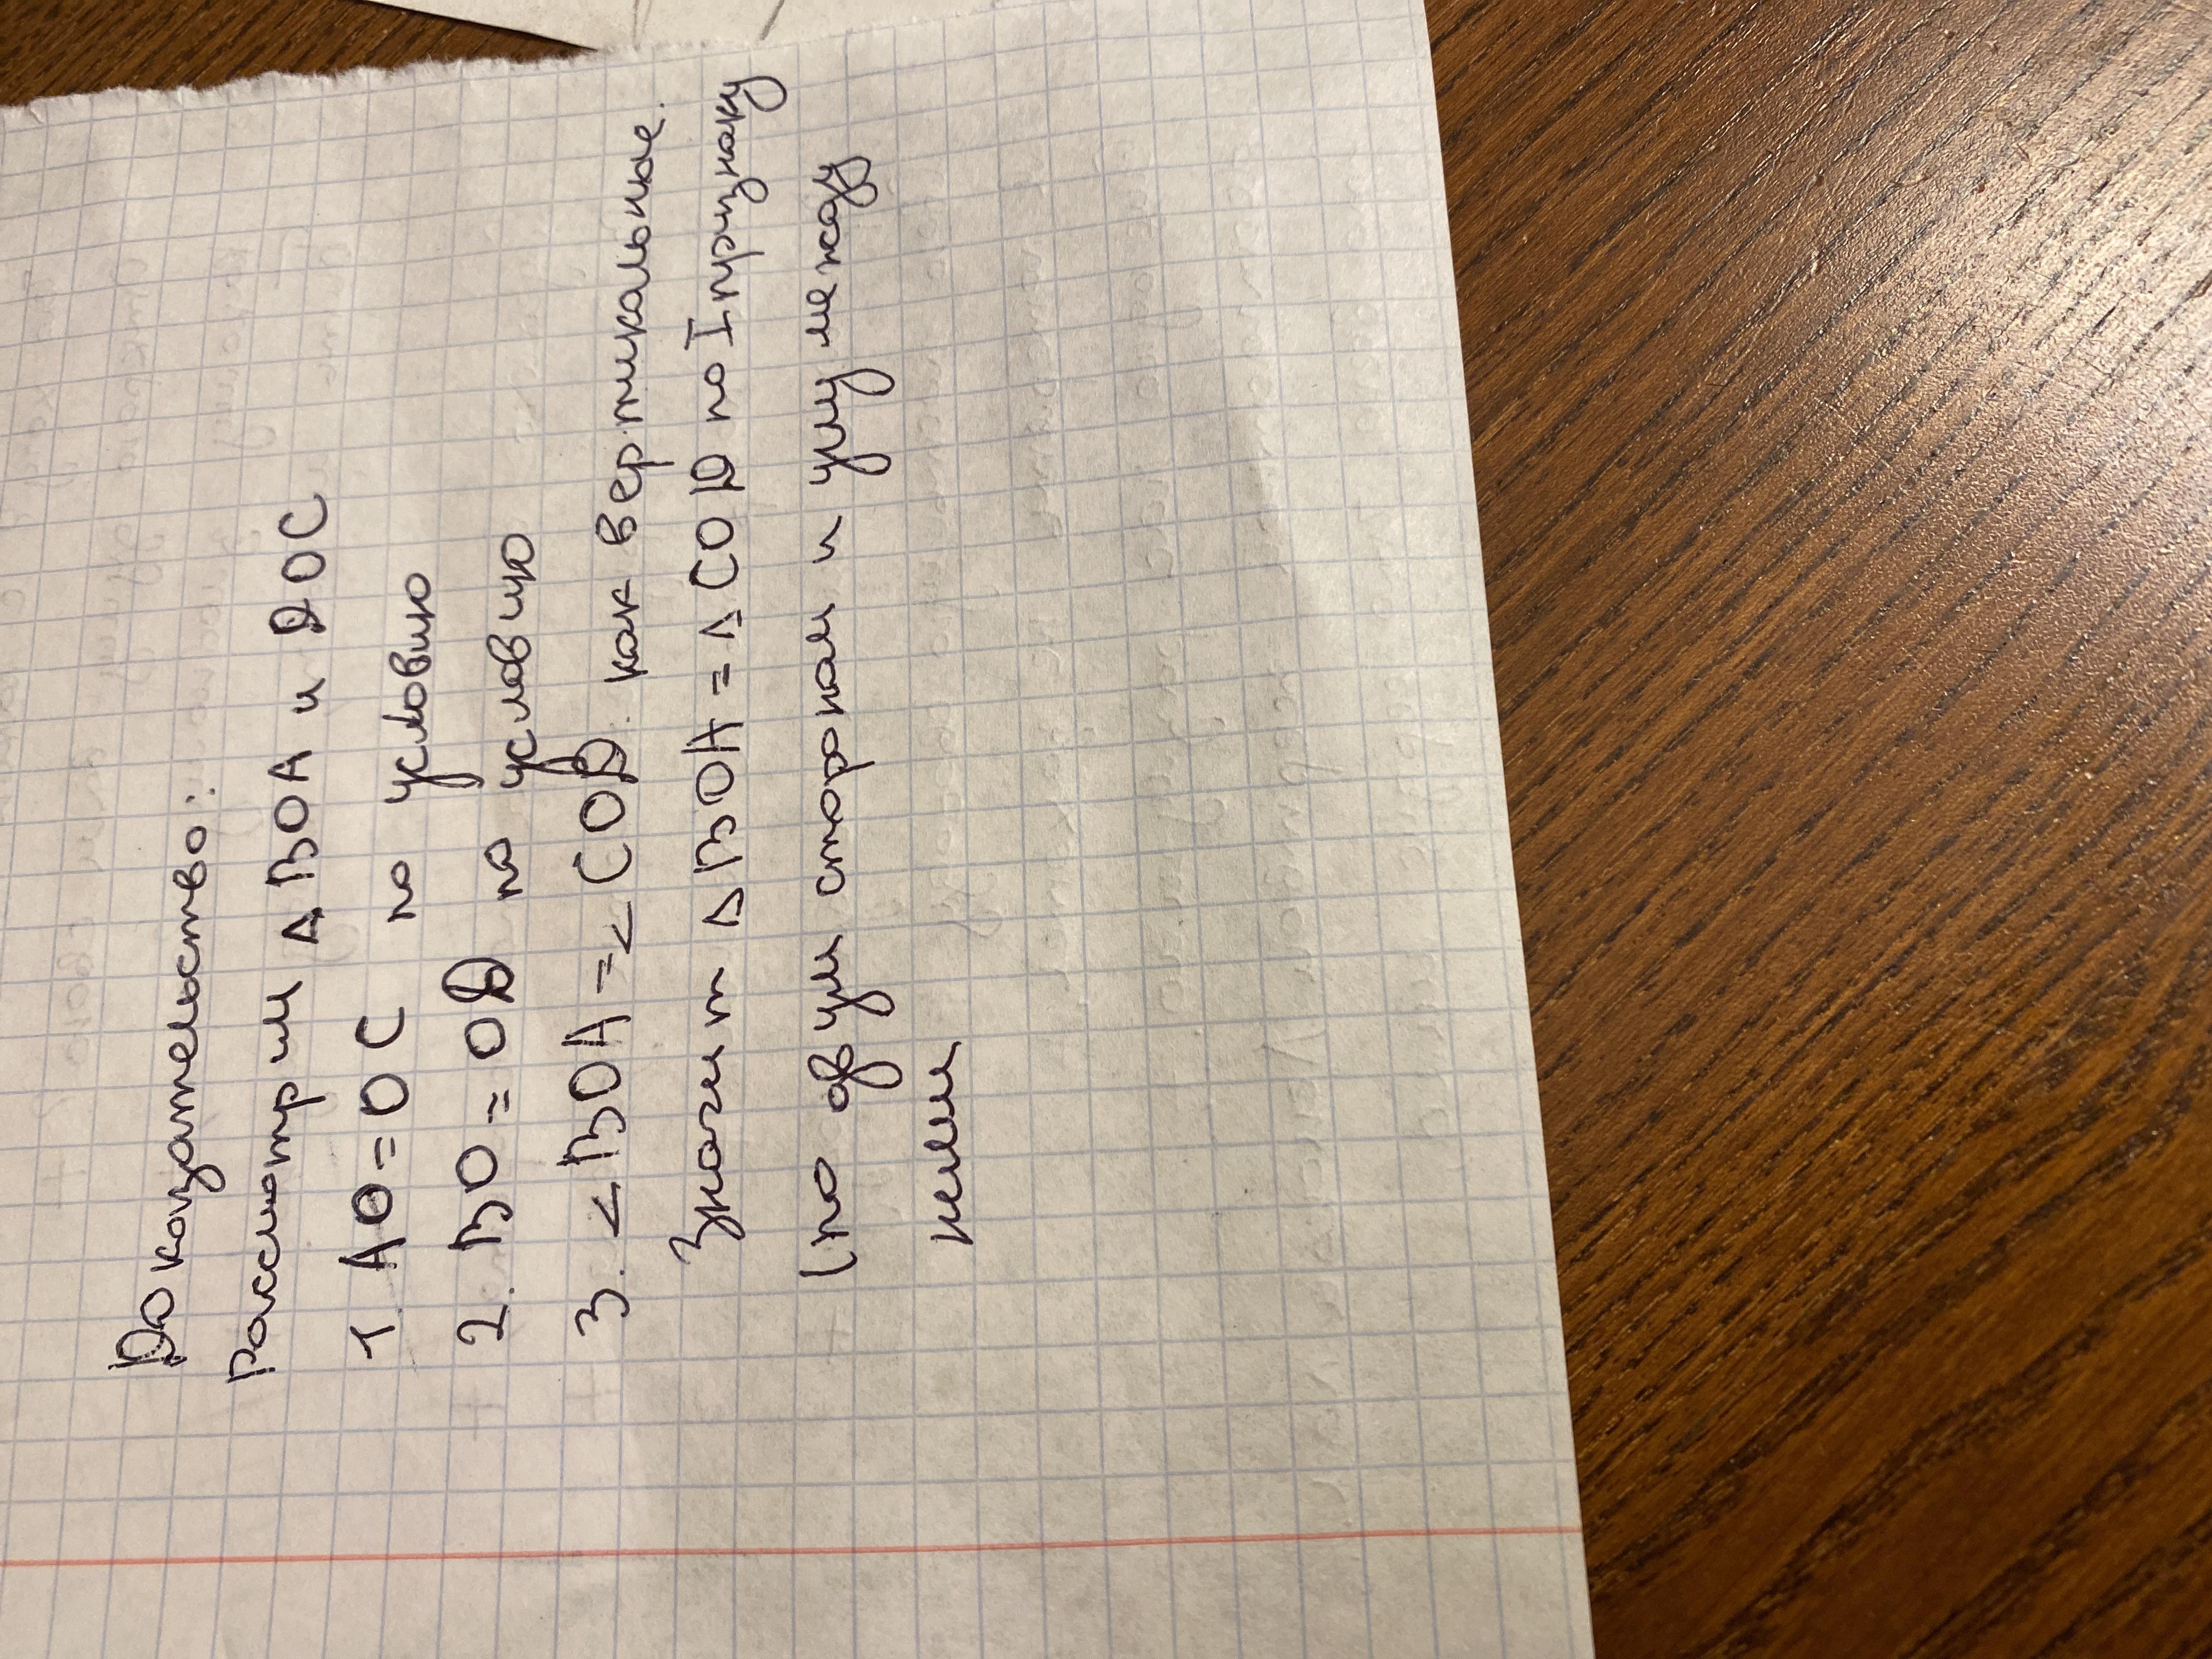 Доказательство:
Рассмотрим Δ BOA и DOC
1. AO = OC по условию
2. BO = OD по условию
3. < BOA = < COD как вертикальные.
Значит Δ BOA = Δ COD по I признаку
(по двум сторонам и углу между
ними